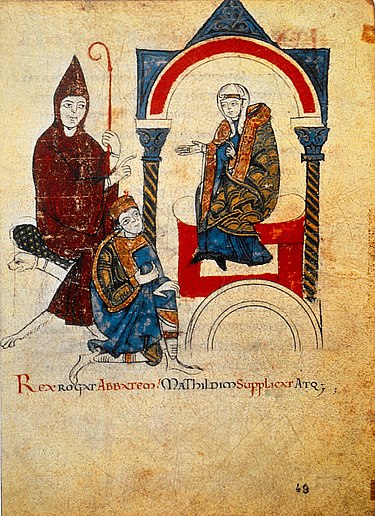 Rex rogat Abbatem! Mathildim Supplicat Atq;
49